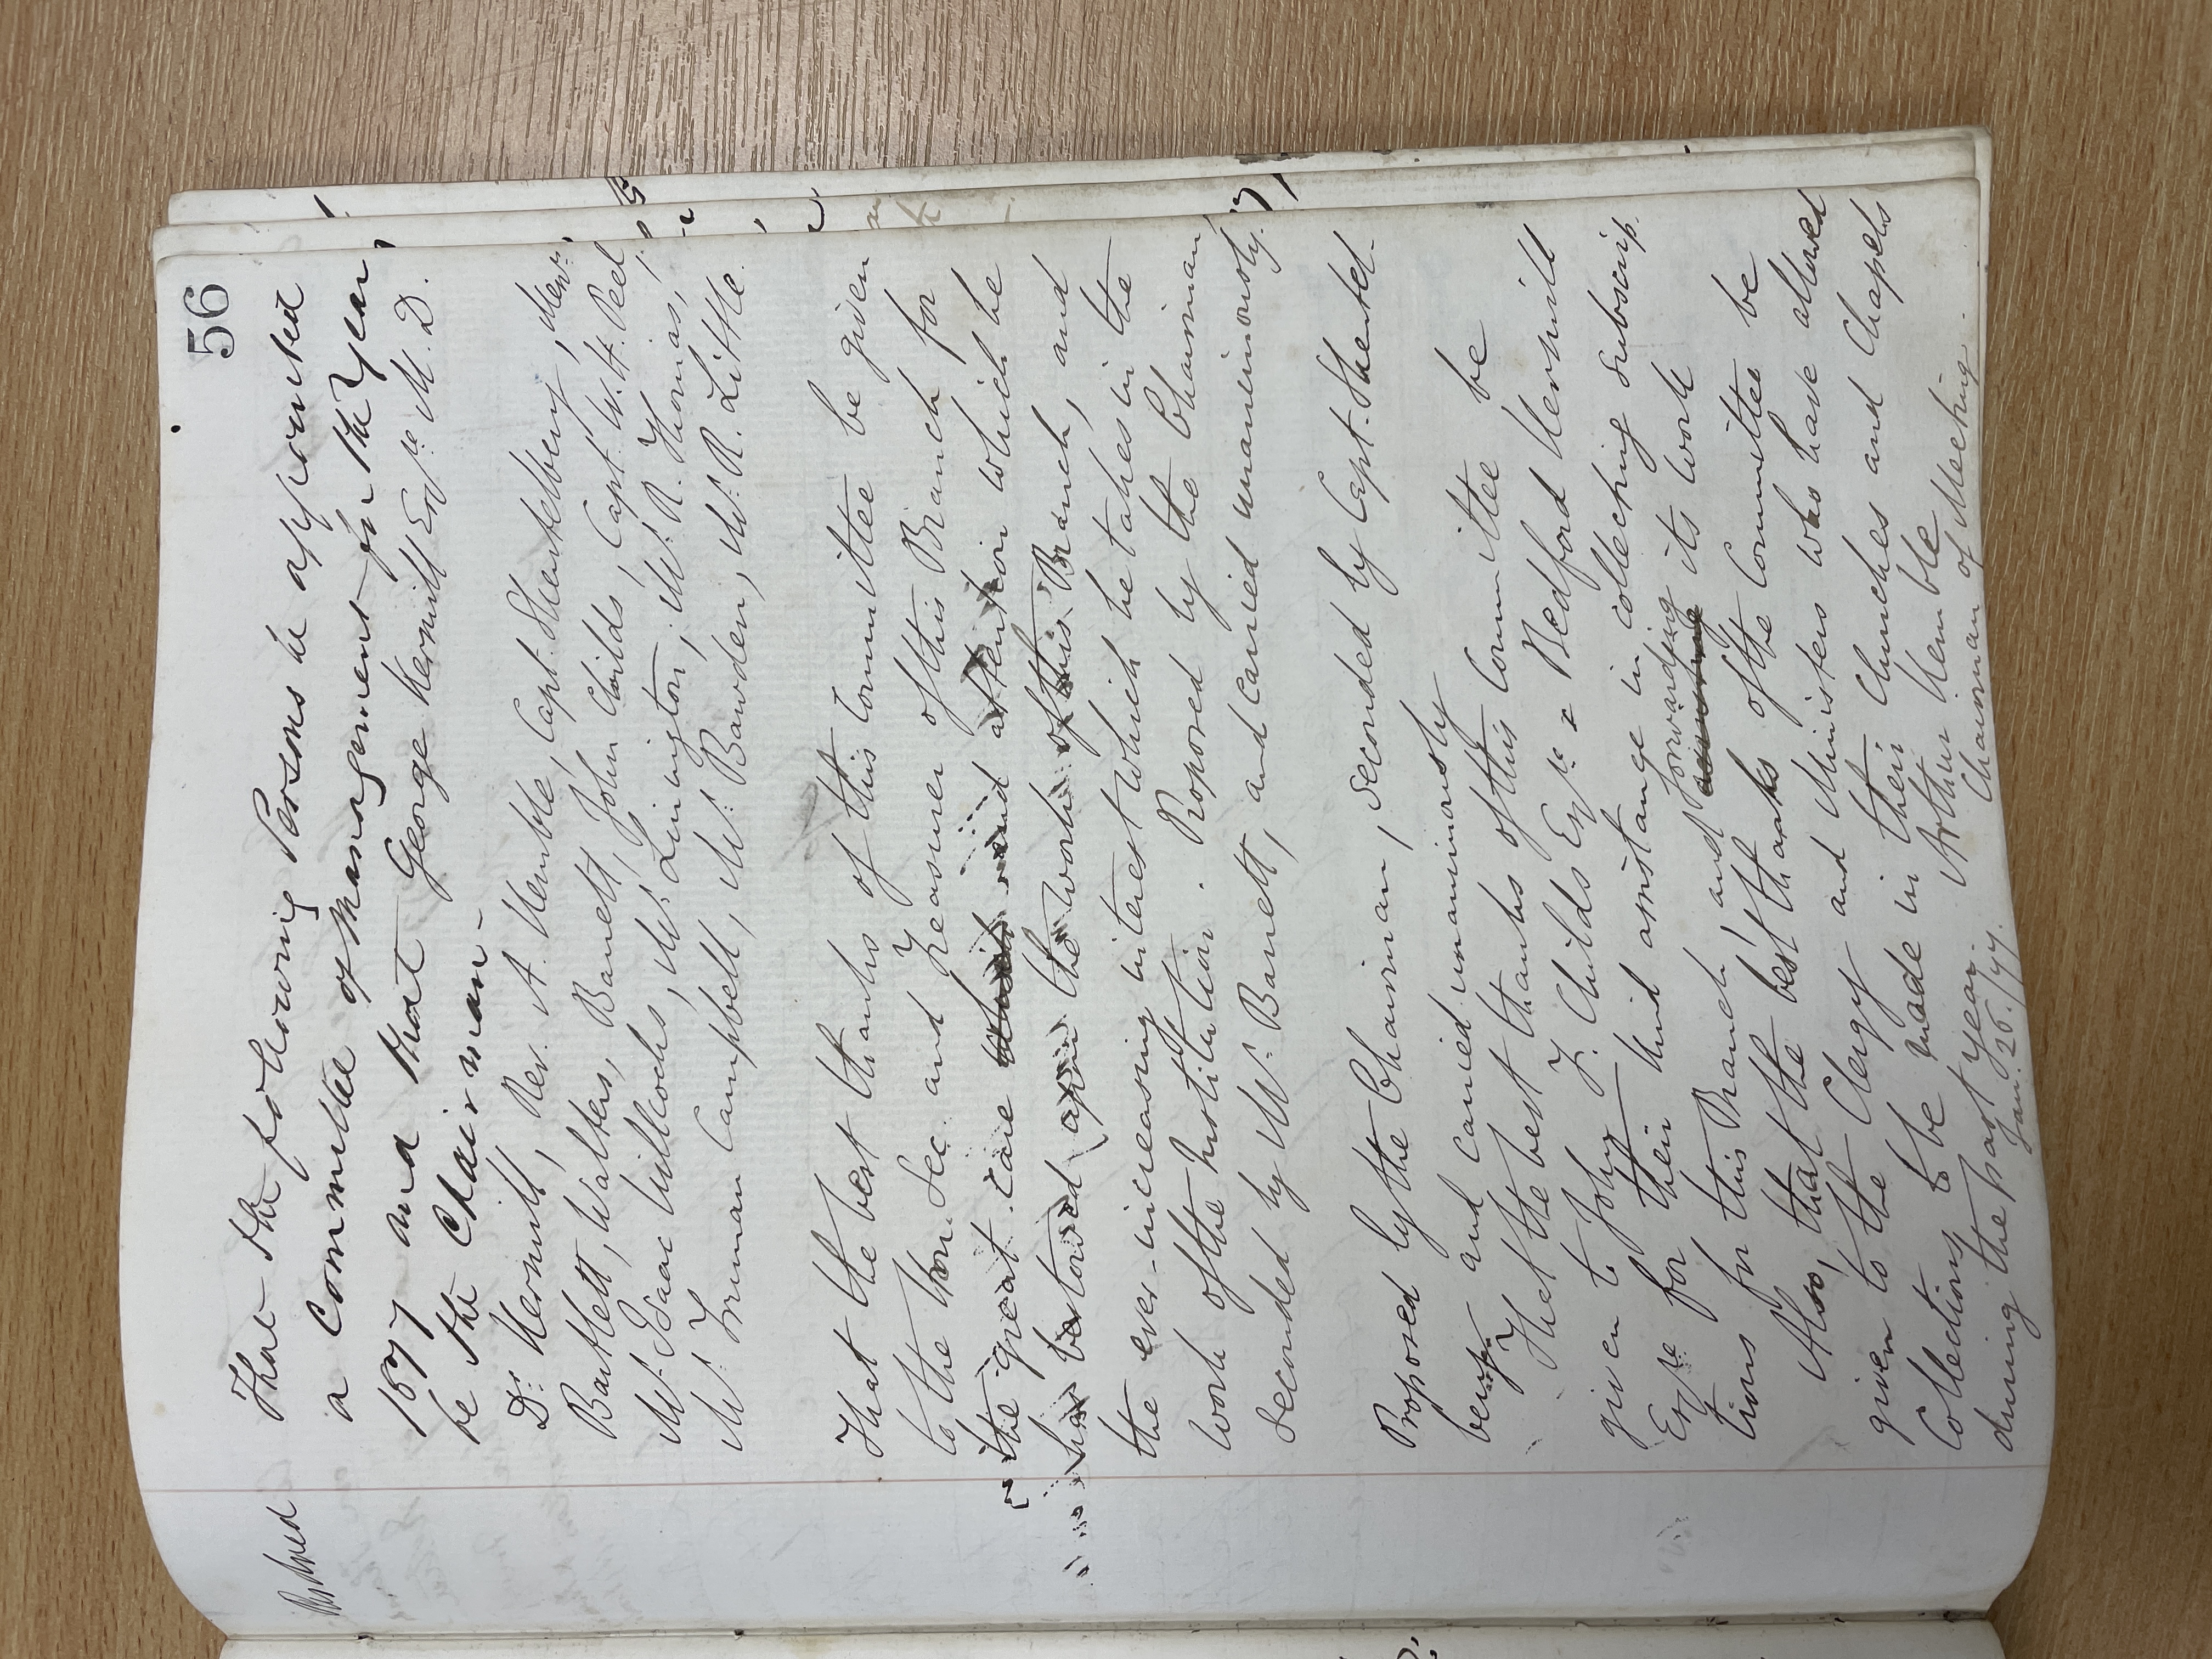 56
Resolved That the following Persons be appointed
a Committee of Management for the Year
1877 and that George Kerswill Esqre M.D.
be the Chairman -
Dr. Kerswill, Rev. A. Kemble, Capt. Shentelbury,
Bartlett, Walters, Barrett, John Childs, Capt. W. H. Peel,
Mr. Isaac Willcocks, Mr. Livingston, Mr. R. Thomas,
Mr. Truman Campbell, Mr. Bawden, Mr. R. Little.
That the best thanks of this Committee be given
to the Hon. Sec and Treasurer of this Branch for
the great care and attention which he
has bestowed upon the work of this Branch, and
the ever-increasing interest which he takes in the
work of the Institution. Proposed by the Chairman,
Seconded by Mr. Barrett, and carried unanimously.
Proposed by the Chairman, Seconded by Capt. Shentel-
bury and carried unanimously
That the best thanks of this Committee be
given to John T. Childs Esqre & Bedford Kerswill
Esqre for their kind assistance in collecting Subscrip-
tions for this Branch, and forwarding its work
Also, that the best thanks of the Committee be
given to the Clergy and Ministers who have allowed
Collections to be made in their Churches and Chapels
during the past year. Arthur Kemble
Jan. 26./77. Chairman of Meeting.